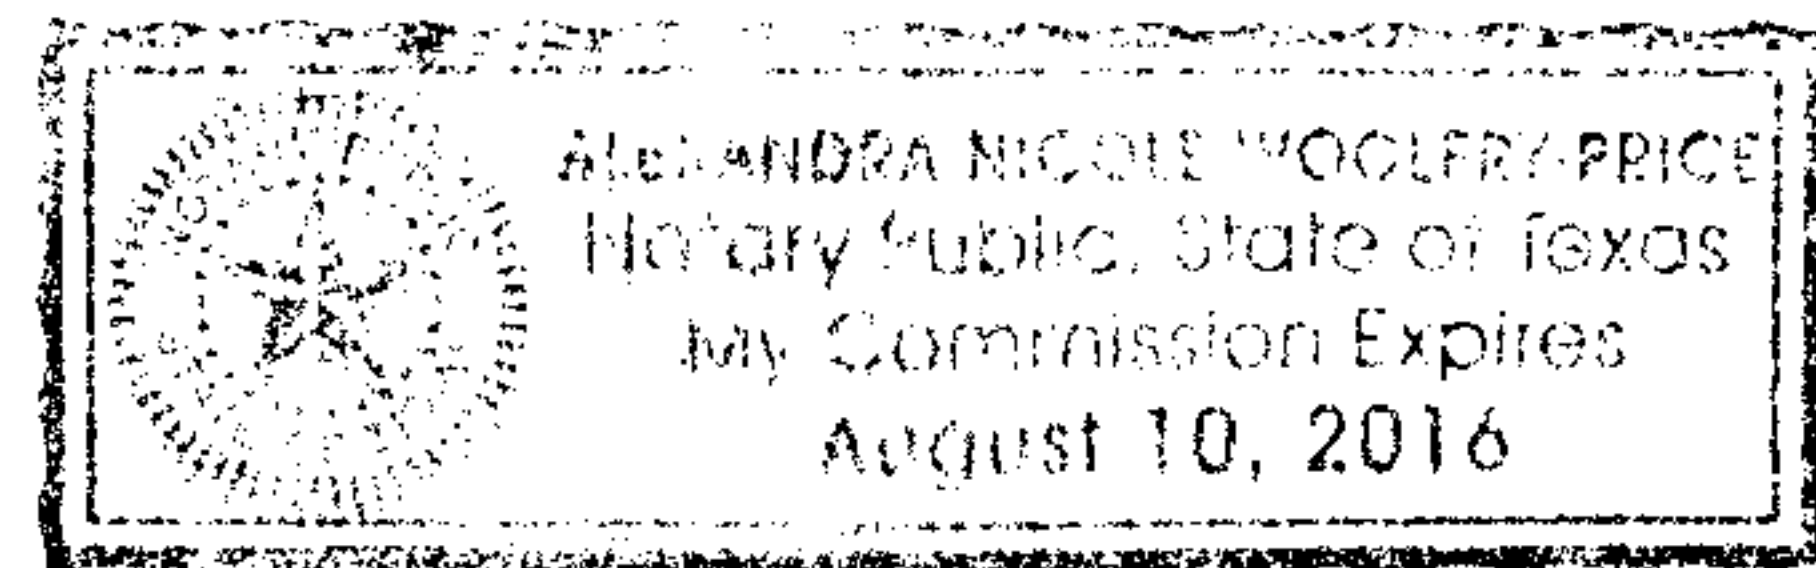 ALEXANDRA NICOLE WOOLERY-PRICE
Notary Public, State of Texas
My Commission Expires
August 10, 2016